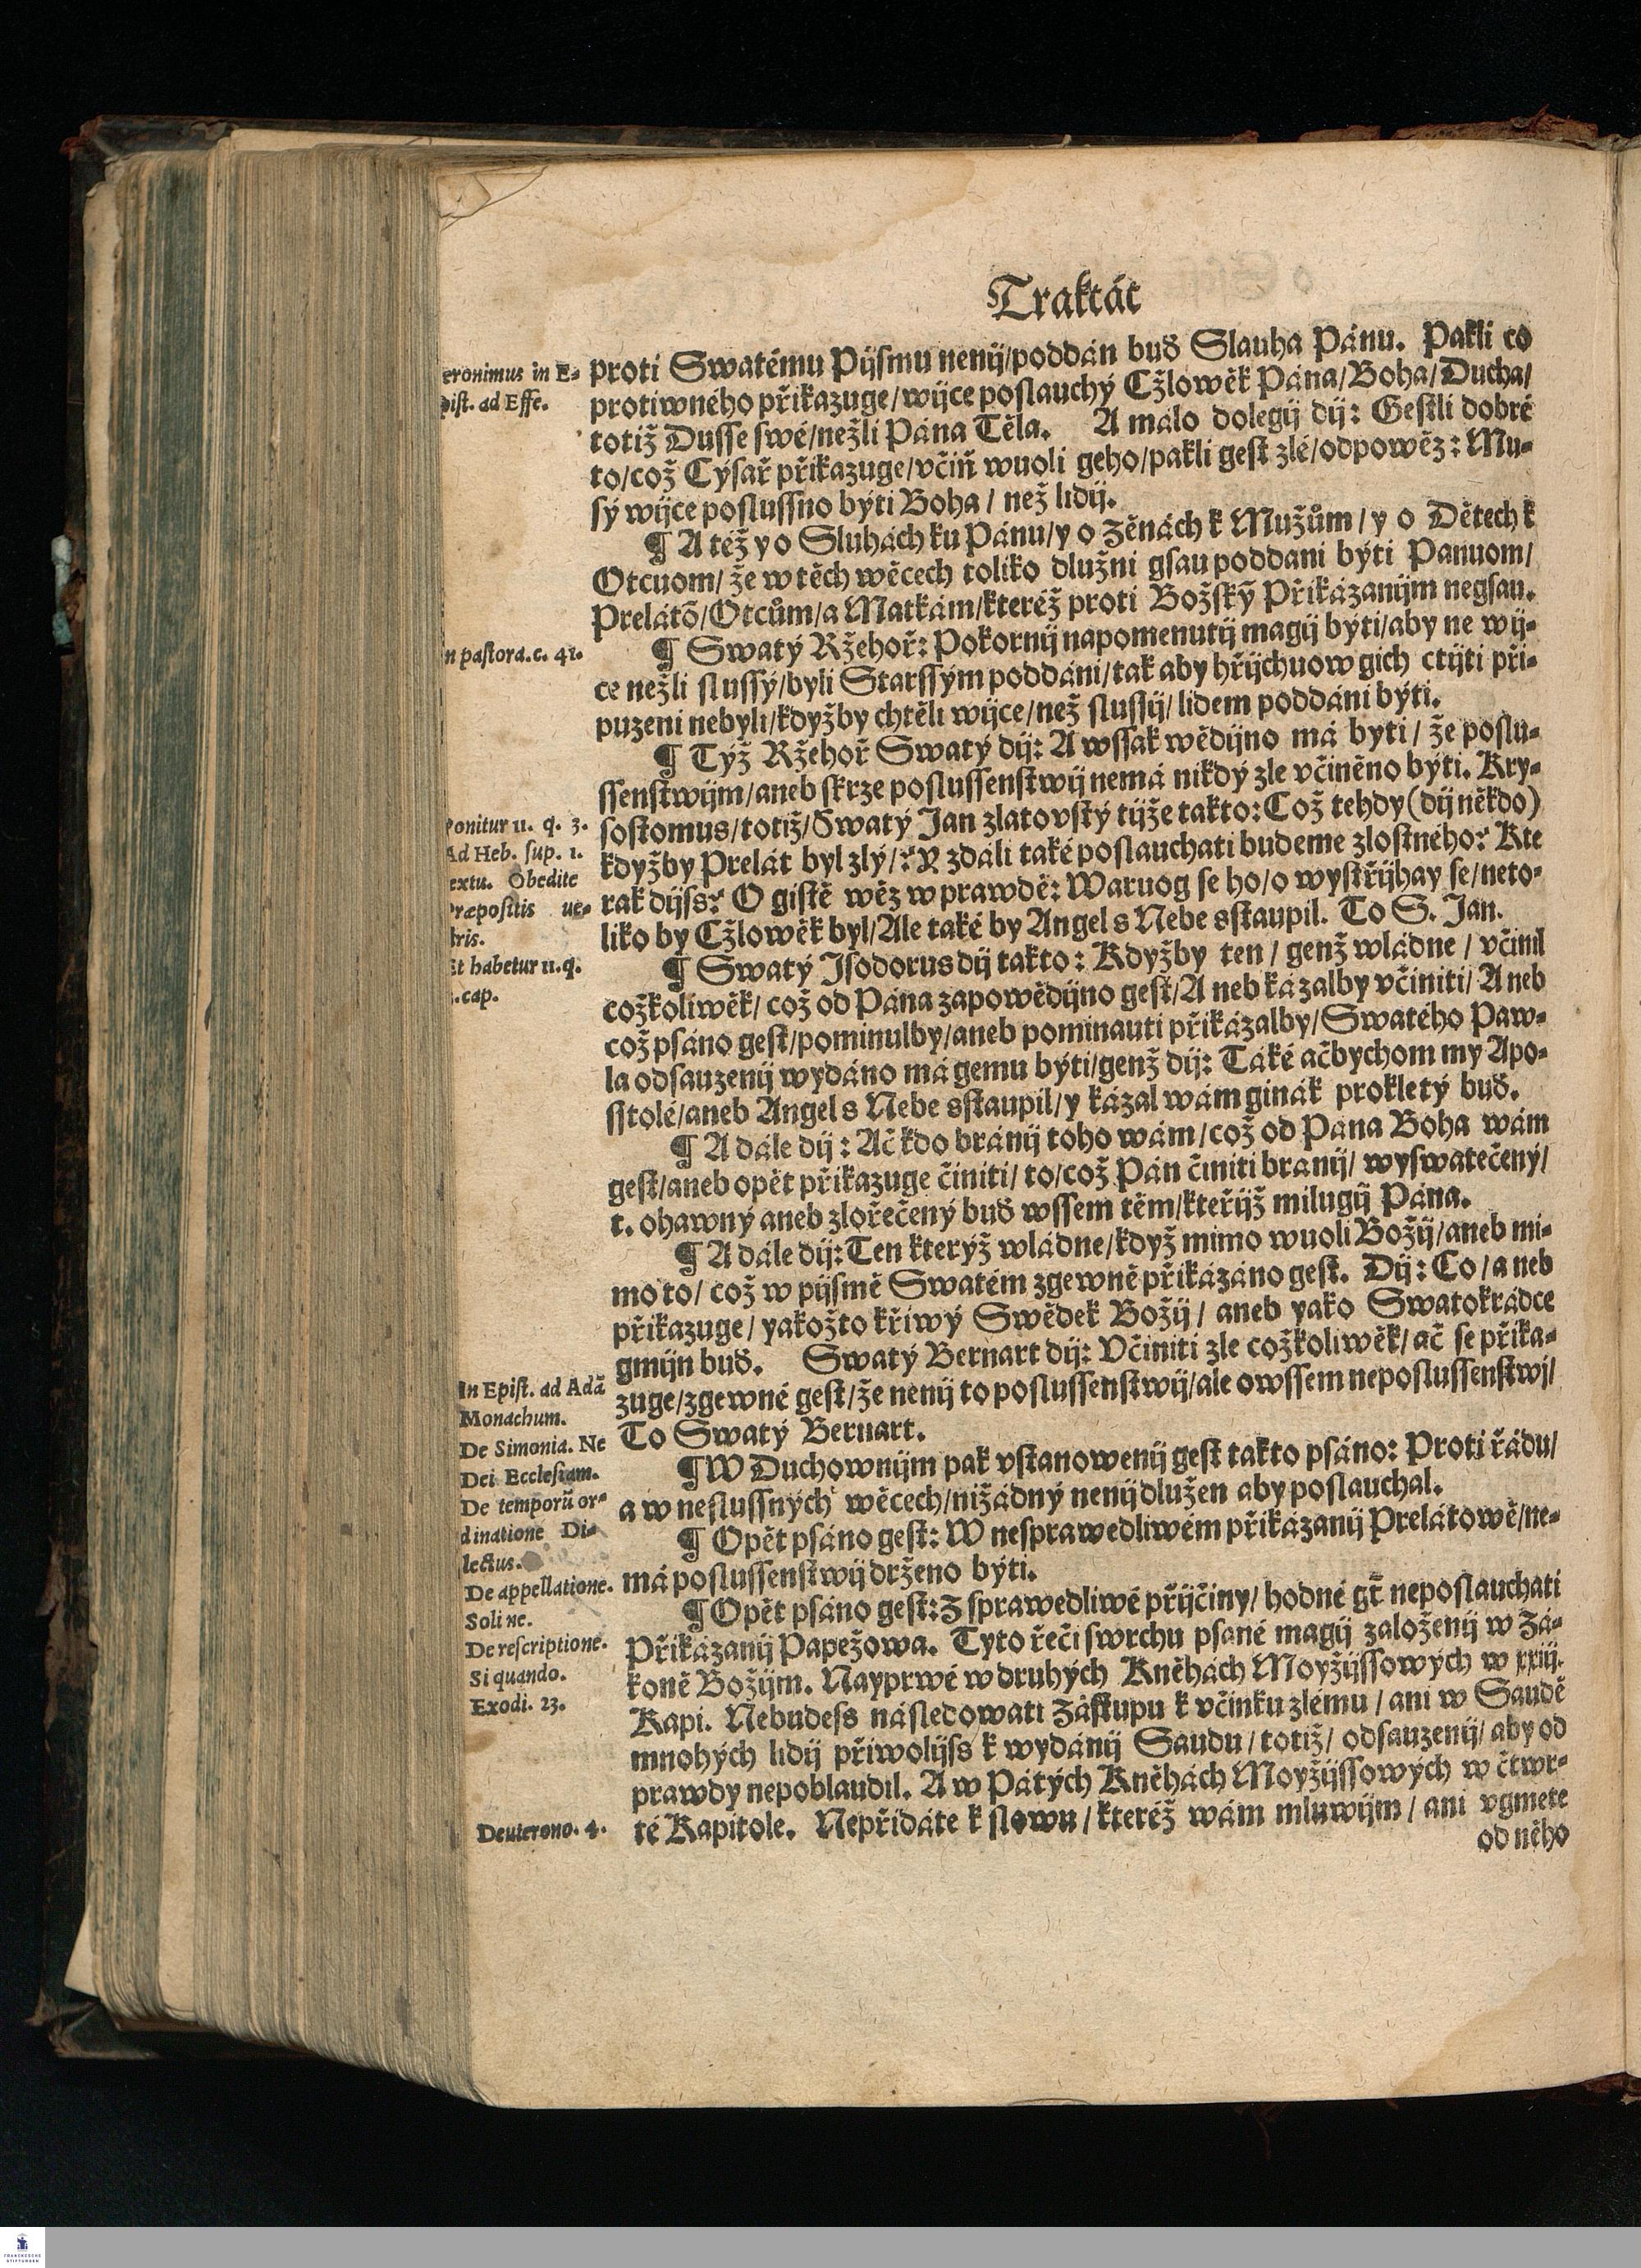 Traktát
eronimus in E-
pist. ad Effe.
proti Swatému Pijsmu nenij/poddán buď Slauha Pánu. Pakli co
protiwného přikazuge/wijce poslauchý Cžlowěk Pána/Boha/Ducha/
totiž Dusse swé/nežli Pána Těla. A málo dolegij dij: Gestli dobré
to/což Cýsař přikazuge/včiň wuoli geho/pakli gest zlé/odpowěz: Mu-
sý wijce poslussno býti Boha / než lidij.
¶ A též y o Sluhách ku Pánu/y o Zěnách k Mužům / y o Dětech k
Otcuom/ že w těch wěcech toliko dlužni gsau poddáni býti Panuom/
Prelátõ/Otcům/a Matkám/kteréž proti Božskỹ Přikázanijm negsau.
n pastora. c. 41.
¶ Swatý Ržehoř: Pokornij napomenutij magij býti/aby ne wij-
ce nežli slussý/byli Starssým poddáni/tak aby hřijchuow gich ctijti při-
puzeni nebyli/kdyžby chtěli wijce/než slussij/ lidem poddáni býti.
¶ Týž Ržehoř Swatý dij: A wssak wědijno má byti / že poslu-
ssenstwijm/aneb skrze poslussenstwij nemá nikdý zle včiněno býti. Kry-
Ponitur 11. q. 3.
Ad Heb. sup. 1.
extu. Obedite
Præpositis ue-
stris.
Et habetur 11. q.
3. cap.
sostomus/totiž/Swatý Jan zlatovstý tijže takto: Což tehdy (dij někdo)
kdyžby Prelát byl zlý/? Y zdáli také poslauchati budeme zlostného? Kte
rak dijss? O gistě wěz w prawdě: Waruog se ho/o wystřijhay se/neto-
liko by Cžlowěk byl/Ale také by Angel s Nebe sstaupil. To S. Jan.
¶ Swatý Isodorus dij takto: Kdyžby ten / genž wládne / včinil
cožkoliwěk/ což od Pána zapowědijno gest/A neb kázalby včiniti/ A neb
což psáno gest/pominulby/aneb pominauti přikázalby/Swatého Paw-
la odsauzenij wydáno má gemu býti/genž dij: Také ačbychom my Apo-
sstolé/aneb Angel s Nebe sstaupil/y kázal wám ginák prokletý buď.
¶ A dále dij: Ač kdo bránij toho wám/což od Pána Boha wám
gest/aneb opět přikazuge činiti/ to/což Pán činiti branij/ wyswatečený/
t. ohawný aneb zlořečený buď wssem těm/kteřijž milugij Pána.
¶ A dále dij: Ten kterýž wládne/když mimo wuoli Božij/aneb mi-
mo to/ což w pijsmě Swatém zgewně přikázáno gest. Dij: Co / a neb
přikazuge/ yakožto křiwý Swědek Božij / aneb yako Swatokrádce
gmijn buď. Swatý Bernart dij: Včiniti zle cožkoliwěk/ ač se přika-
In Epist. ad Adā
Monachum.
zuge/zgewné gest/že nenij to poslussenstwij/ale owssem neposlussenstwj/
To Swatý Bernart.
De Simonia. Ne
Dei Ecclesiam.
¶ W Duchownijm pak vstanowenij gest takto psáno: Proti řádu/
a w neslussných wěcech/nižádný nenij dlužen aby poslauchal.
De temporū or-
dinatione Di-
lectus.
¶ Opět psáno gest: W nesprawedliwém přikázanij Prelátowě/ne-
má poslussenstwij drženo býti.
De appellatione.
Soli ne.
De rescriptione.
Si quando.
¶ Opět psáno gest: Z sprawedliwé přijčiny/ hodné gt̃ neposlauchati
Přikázanij Papežowa. Tyto řeči swrchu psané magij založenij w Zá-
koně Božijm. Nayprwé w druhých Kněhách Moyžijssowých w xxiij.
Exodi. 23.
Kapi. Nebudess následowati Zástupu k včinku zlému / ani w Saudě
mnohých lidij přiwolijss k wydánij Saudu / totiž/ odsauzenij/ aby od
prawdy nepoblaudil. A w Pátých Kněhách Moyžijssowých w čtwr-
Deuterono. 4.
té Kapitole. Nepřidáte k slowu / kteréž wám mluwijm / ani vgmete
od něho
FRANCKESCHE
STIFTUNGEN